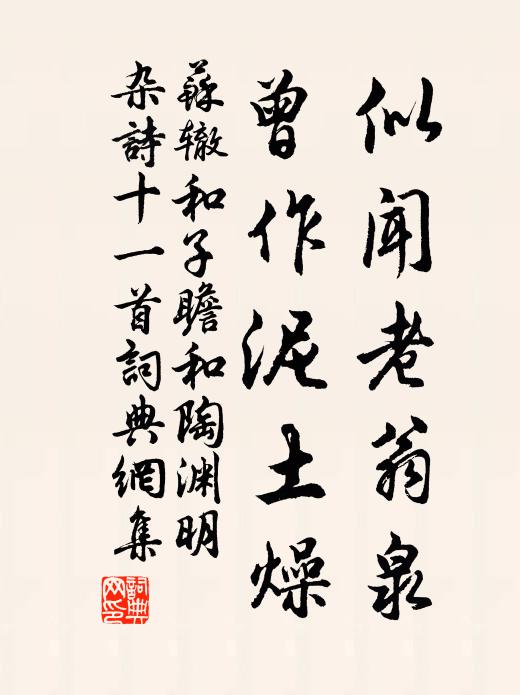 似闻老翁泉
曾作泥土燥
蘇辙和子瞻和陶渊明
杂詩十一首詞典網集
詞典